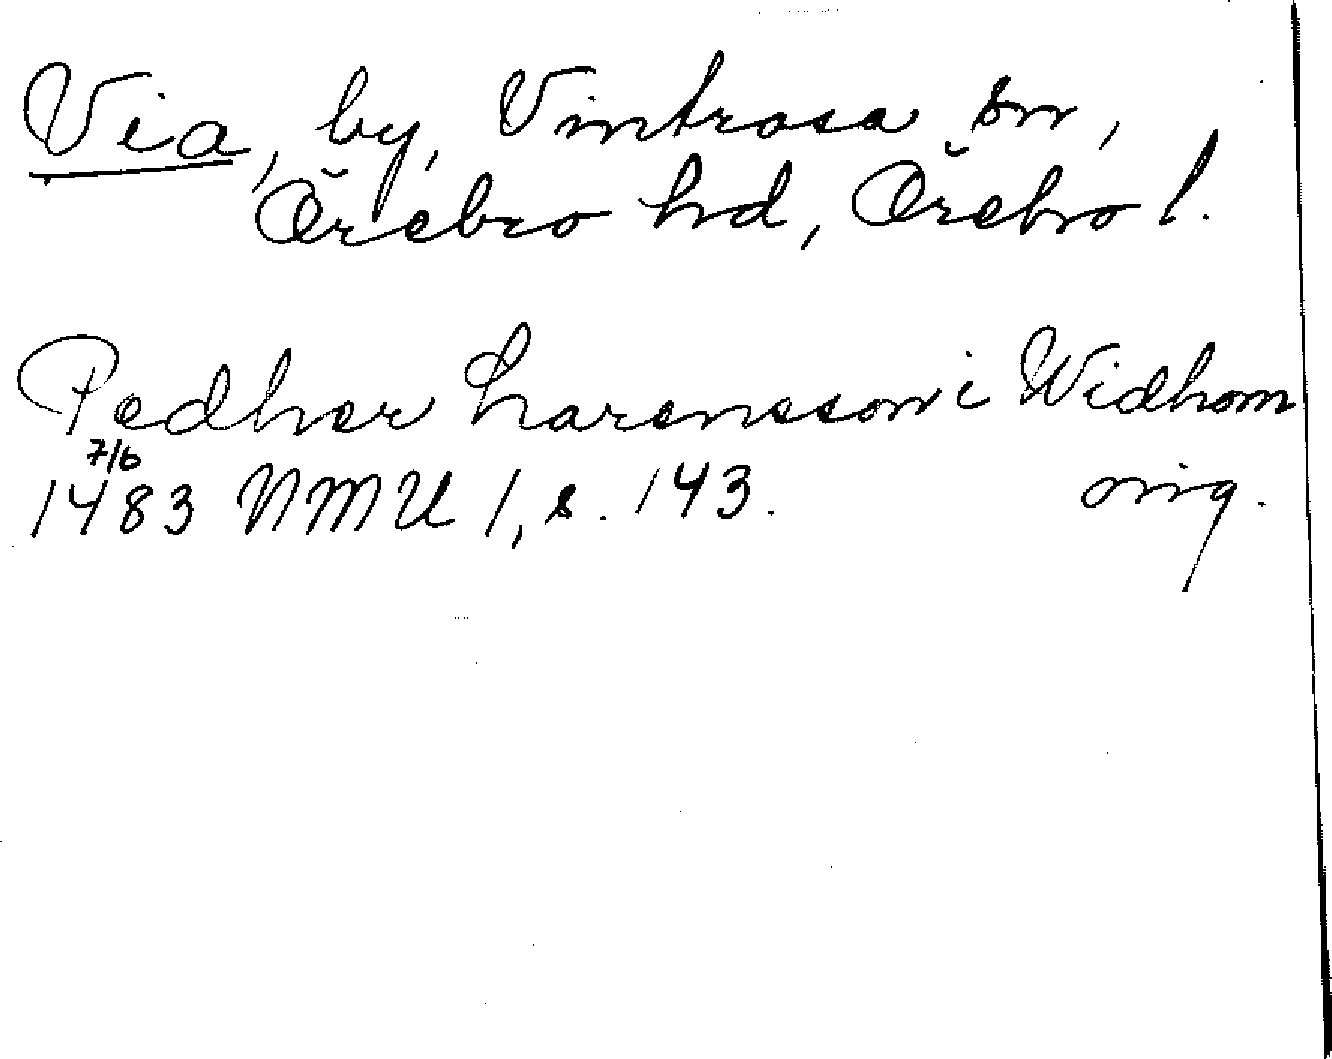 Via, by, Vintrosa sn,
Örebro hd, Örebro l.
Pedher Larensson i Widhom
7/6
1483 NMU 1, s. 143. orig.